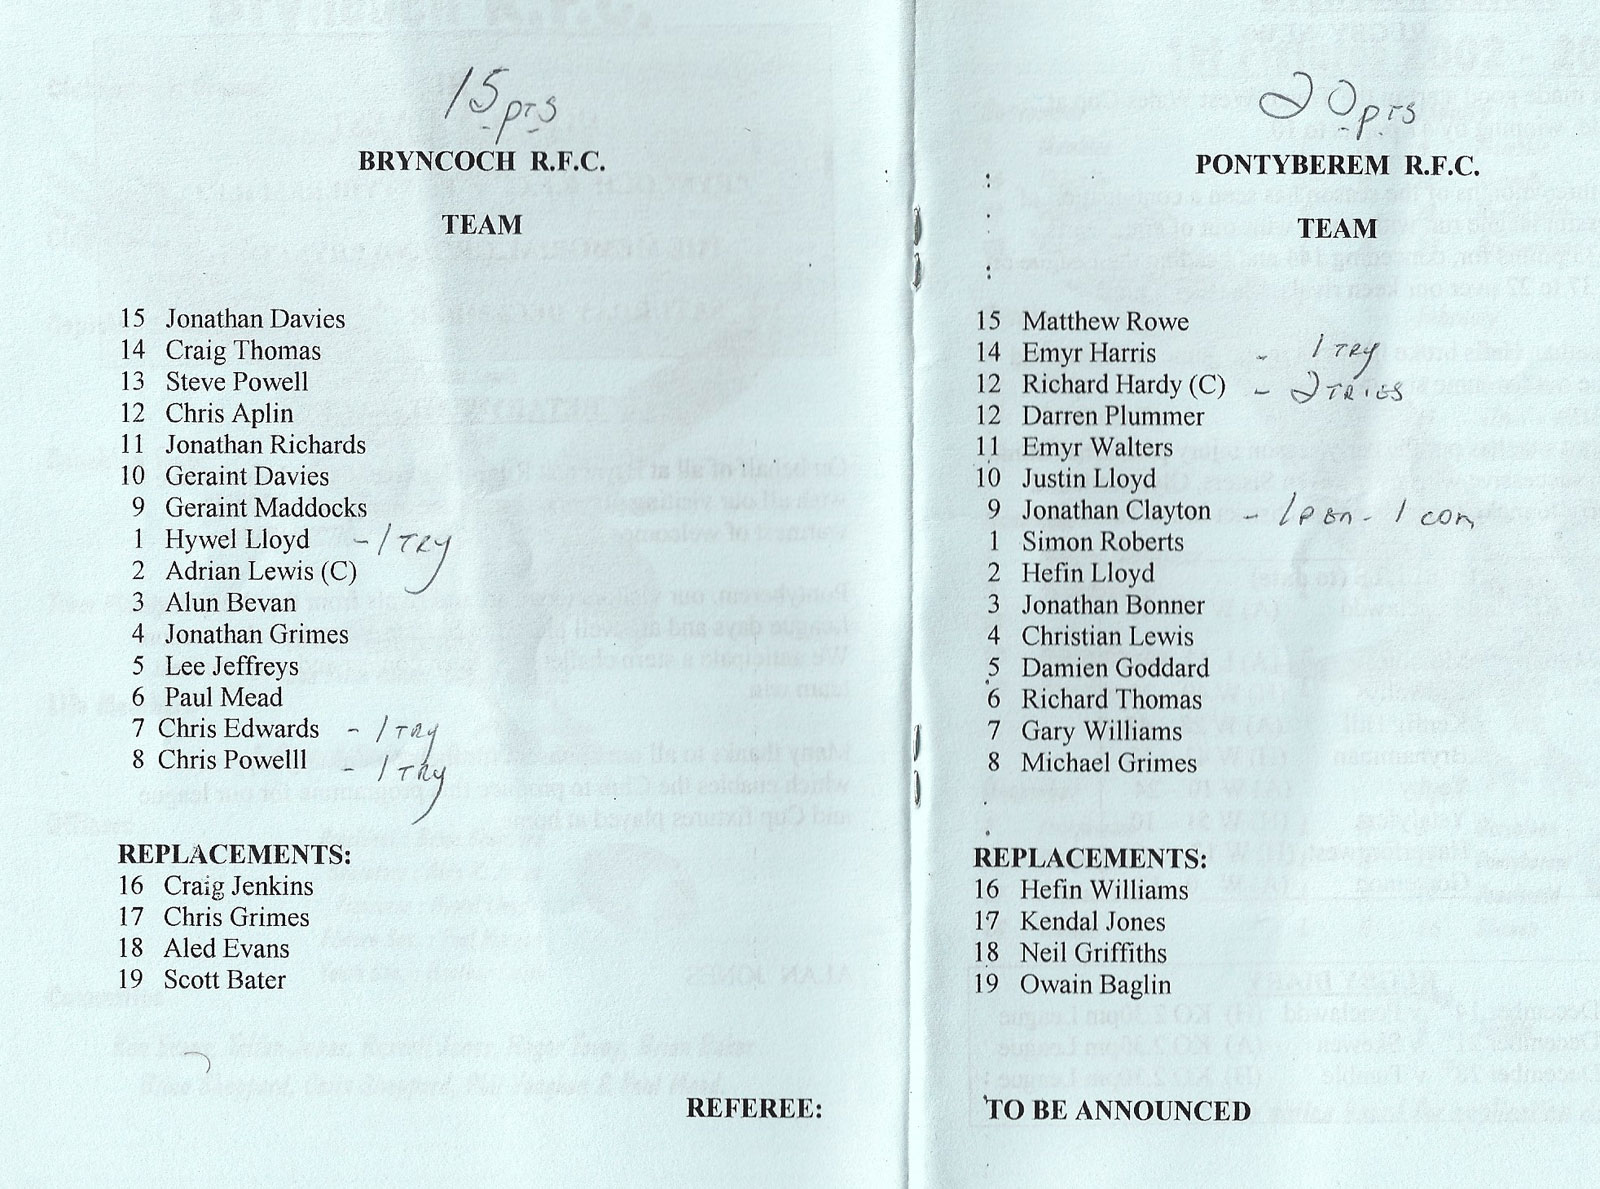 15 pts
BRYNCOCH R.F.C.
TEAM
15 Jonathan Davies
14 Craig Thomas
13 Steve Powell
12 Chris Aplin
11 Jonathan Richards
10 Geraint Davies
9 Geraint Maddocks
1 Hywel Lloyd - 1 TRY
2 Adrian Lewis (C)
3 Alun Bevan
4 Jonathan Grimes
5 Lee Jeffreys
6 Paul Mead
7 Chris Edwards - 1 TRY
8 Chris Powelll - 1 TRY
REPLACEMENTS:
16 Craig Jenkins
17 Chris Grimes
18 Aled Evans
19 Scott Bater
REFEREE:
20 pts
PONTYBEREM R.F.C.
TEAM
15 Matthew Rowe
14 Emyr Harris - 1 TRY
12 Richard Hardy (C) - 2 TRIES
12 Darren Plummer
11 Emyr Walters
10 Justin Lloyd
9 Jonathan Clayton - 1 PEN - 1 CON
1 Simon Roberts
2 Hefin Lloyd
3 Jonathan Bonner
4 Christian Lewis
5 Damien Goddard
6 Richard Thomas
7 Gary Williams
8 Michael Grimes
REPLACEMENTS:
16 Hefin Williams
17 Kendal Jones
18 Neil Griffiths
19 Owain Baglin
TO BE ANNOUNCED